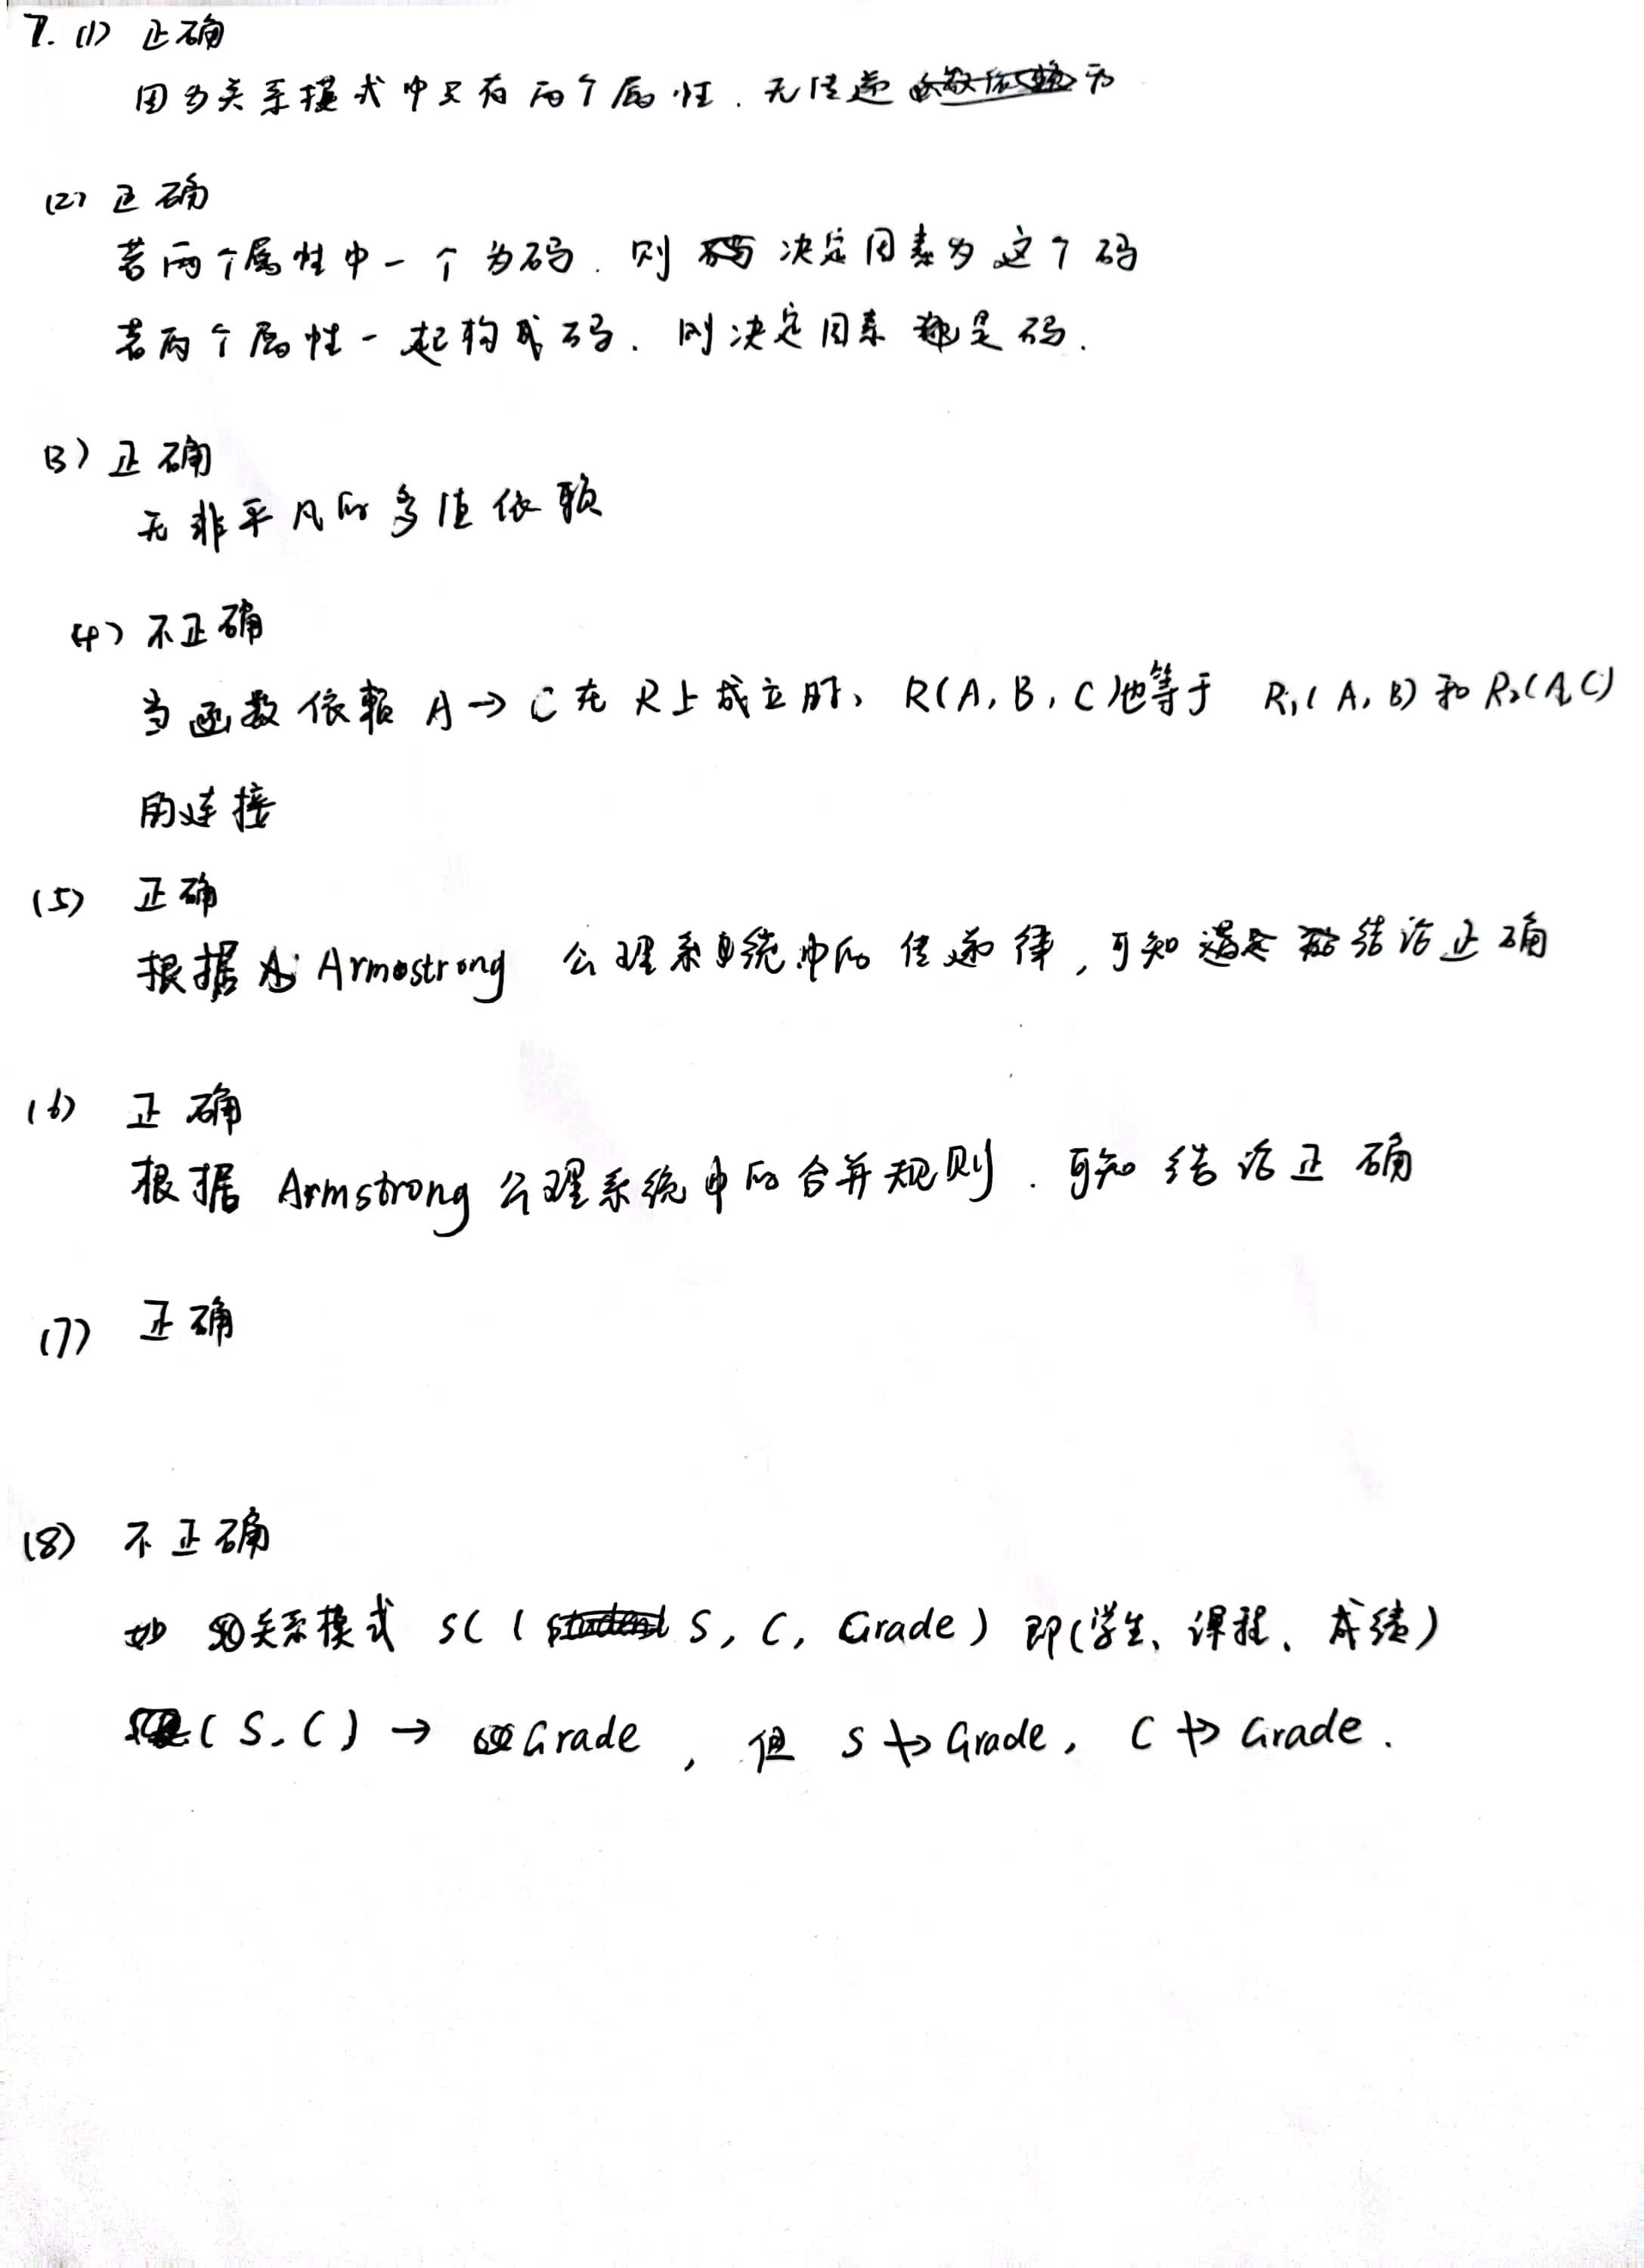 7. (1) 正确
因为关系模式中只有两个属性. 无传递
(2) 正确
若两个属性中一个为码. 则 决定因素为这个码
若两个属性一起构成码. 则决定因素都是码.
(3) 正确
无非平凡的多值依赖
(4) 不正确
当函数依赖 A→C 在 R上成立时、R(A, B, C)也等于 R₁(A, B) 和 R₂(A,C)
的连接
(5) 正确
根据 Armostrong 公理系统中的传递律, 可知 结论正确
(6) 正确
根据 Armstrong 公理系统中的合并规则. 可知 结论正确
(7) 正确
(8) 不正确
如 关系模式 SC ( S, C, Grade) 即(学生、课程、成绩)
(S, C) → Grade , 但 S ↛ Grade, C ↛ Grade.